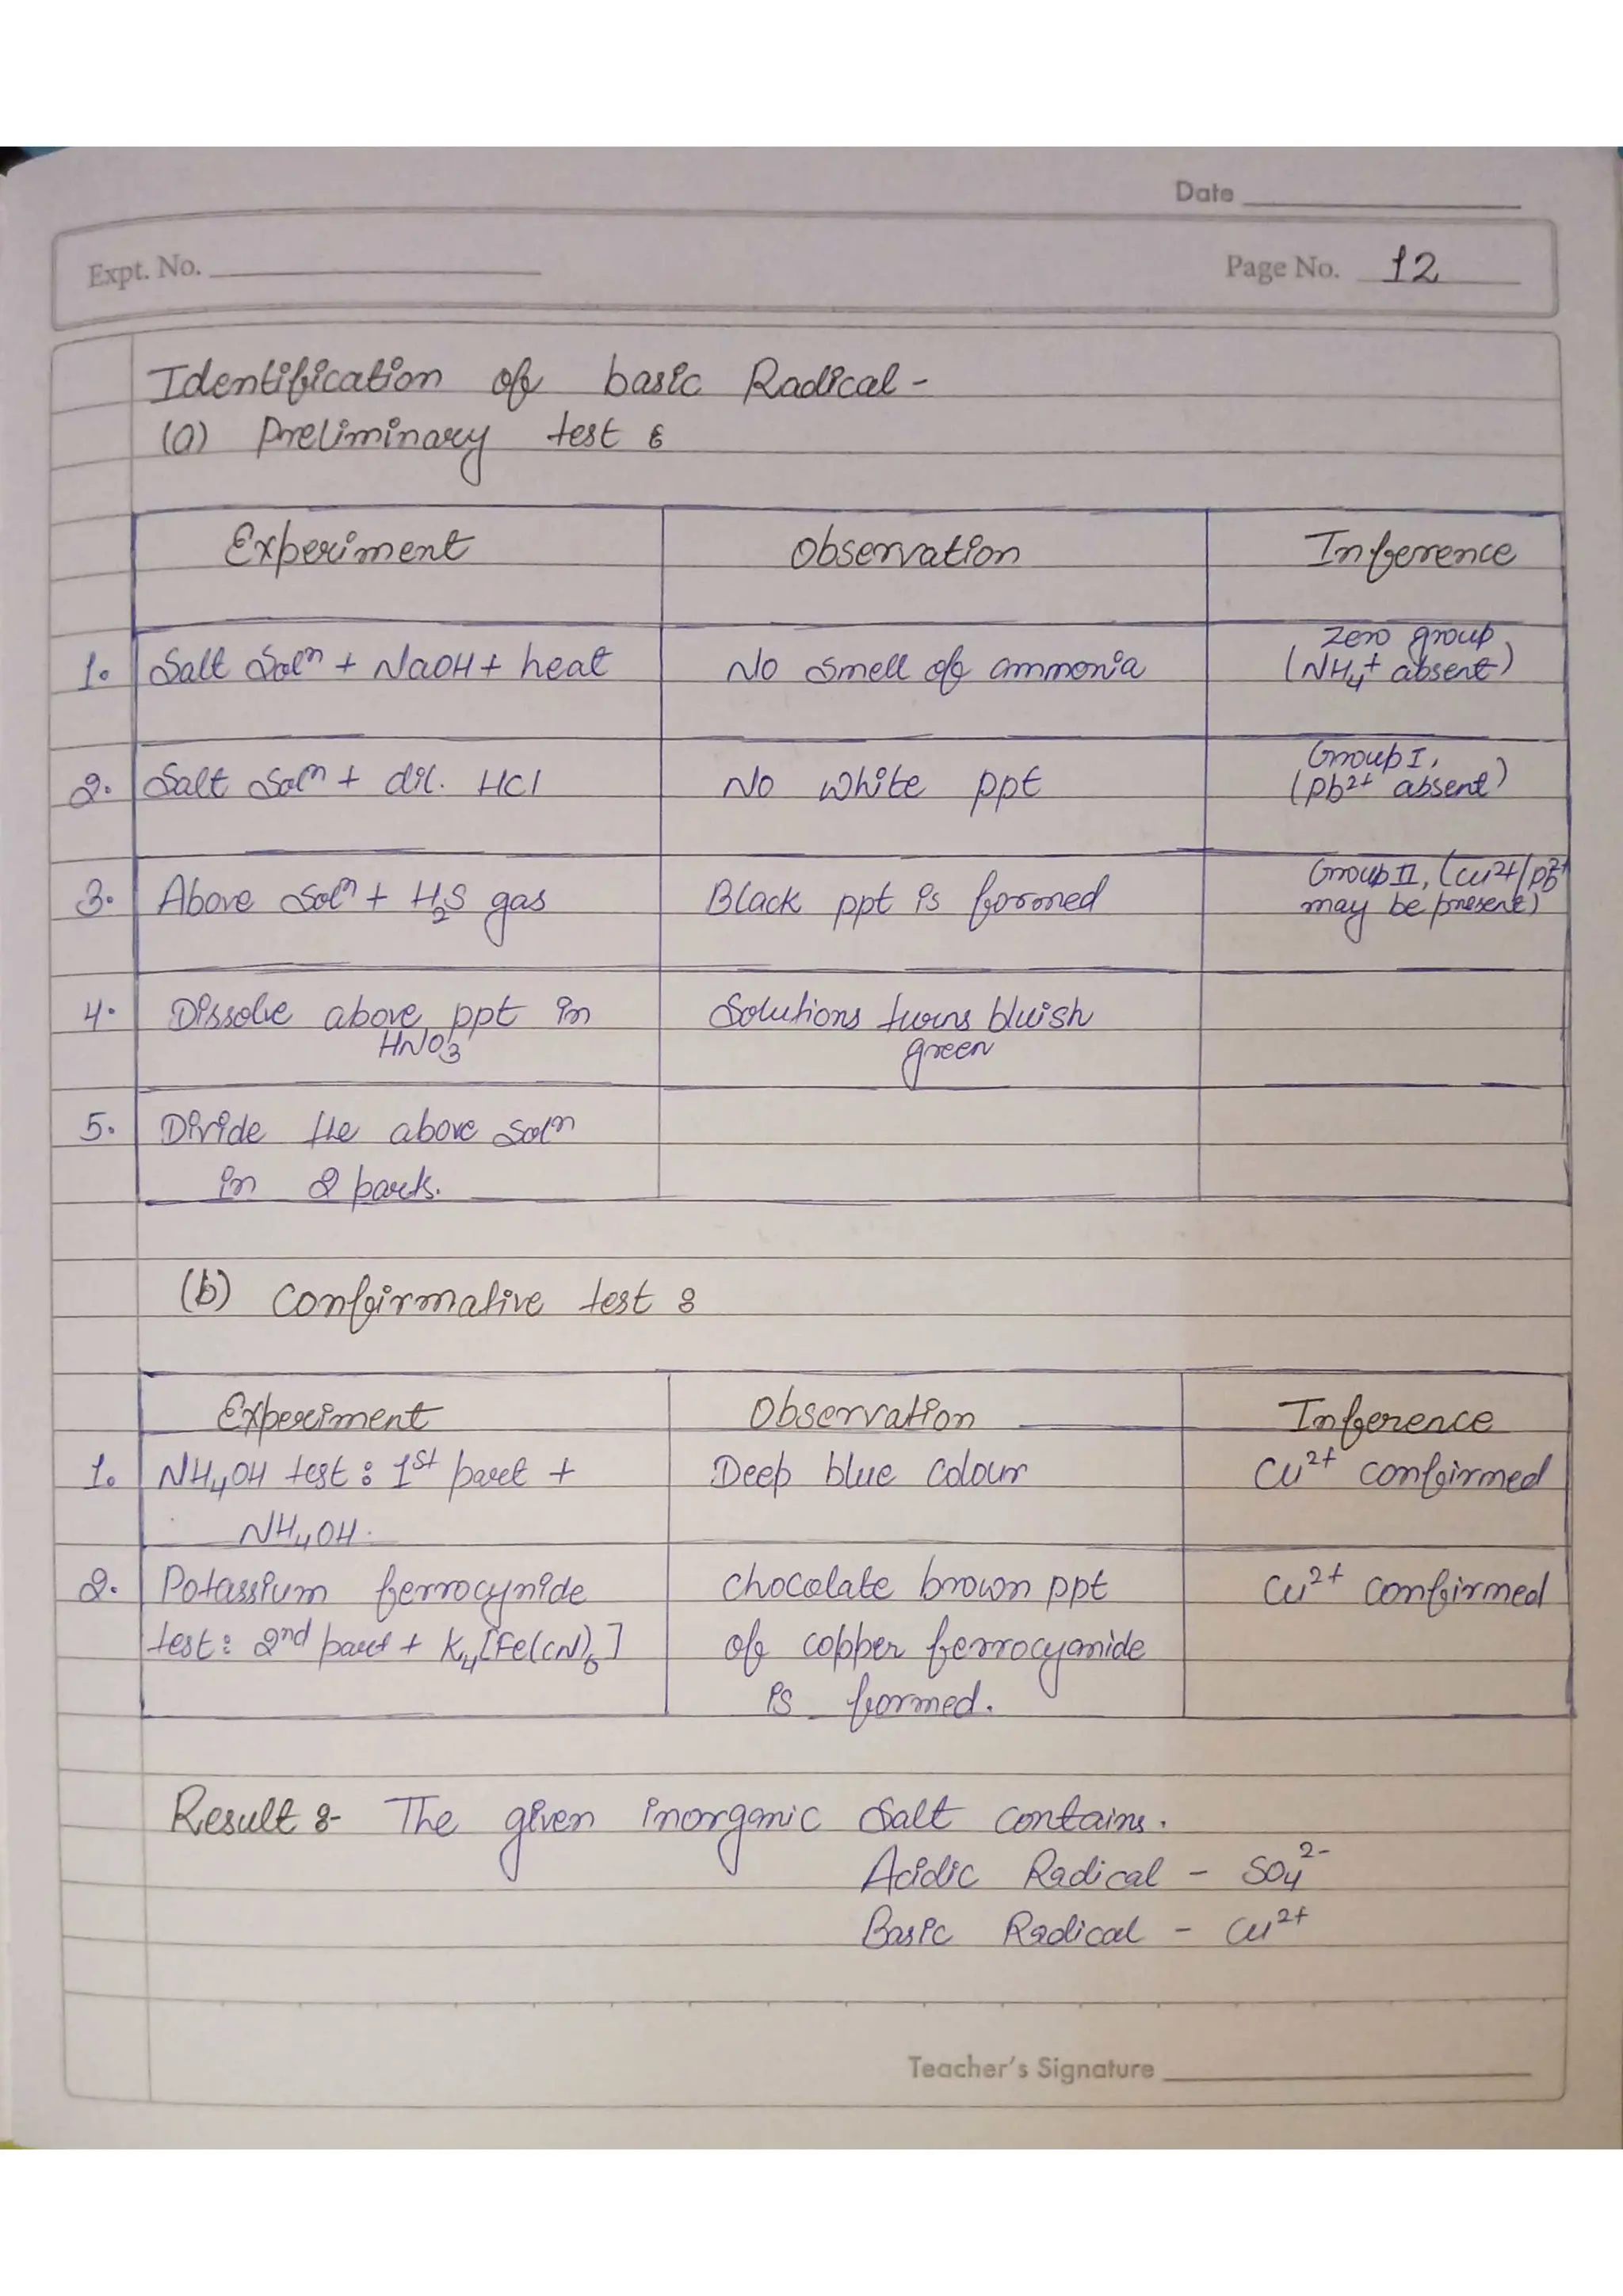 Date
Expt. No.
Page No. 12
Identification of basic Radical -
(a) Preliminary test :
Experiment Observation Inference
1. Salt Solⁿ + NaOH + heat No smell of ammonia Zero group, (NH₄⁺ absent)
2. Salt Solⁿ + dil. HCl No white ppt Group I, (Pb²⁺ absent)
3. Above Solⁿ + H₂S gas Black ppt is formed Group II, (Cu²⁺/Pb²⁺ may be present)
4. Dissolve above ppt in Solutions turns bluish
HNO₃ green
5. Divide the above solⁿ
in 2 parts.
(b) Confirmative test :
Experiment Observation Inference
1. NH₄OH test : 1st part + Deep blue colour Cu²⁺ confirmed
NH₄OH.
2. Potassium ferrocynide chocolate brown ppt Cu²⁺ confirmed
test : 2nd part + K₄[Fe(CN)₆] of copper ferrocyanide
is formed.
Result :- The given inorganic Salt contains.
Acidic Radical - SO₄²⁻
Basic Radical - Cu²⁺
Teacher's Signature